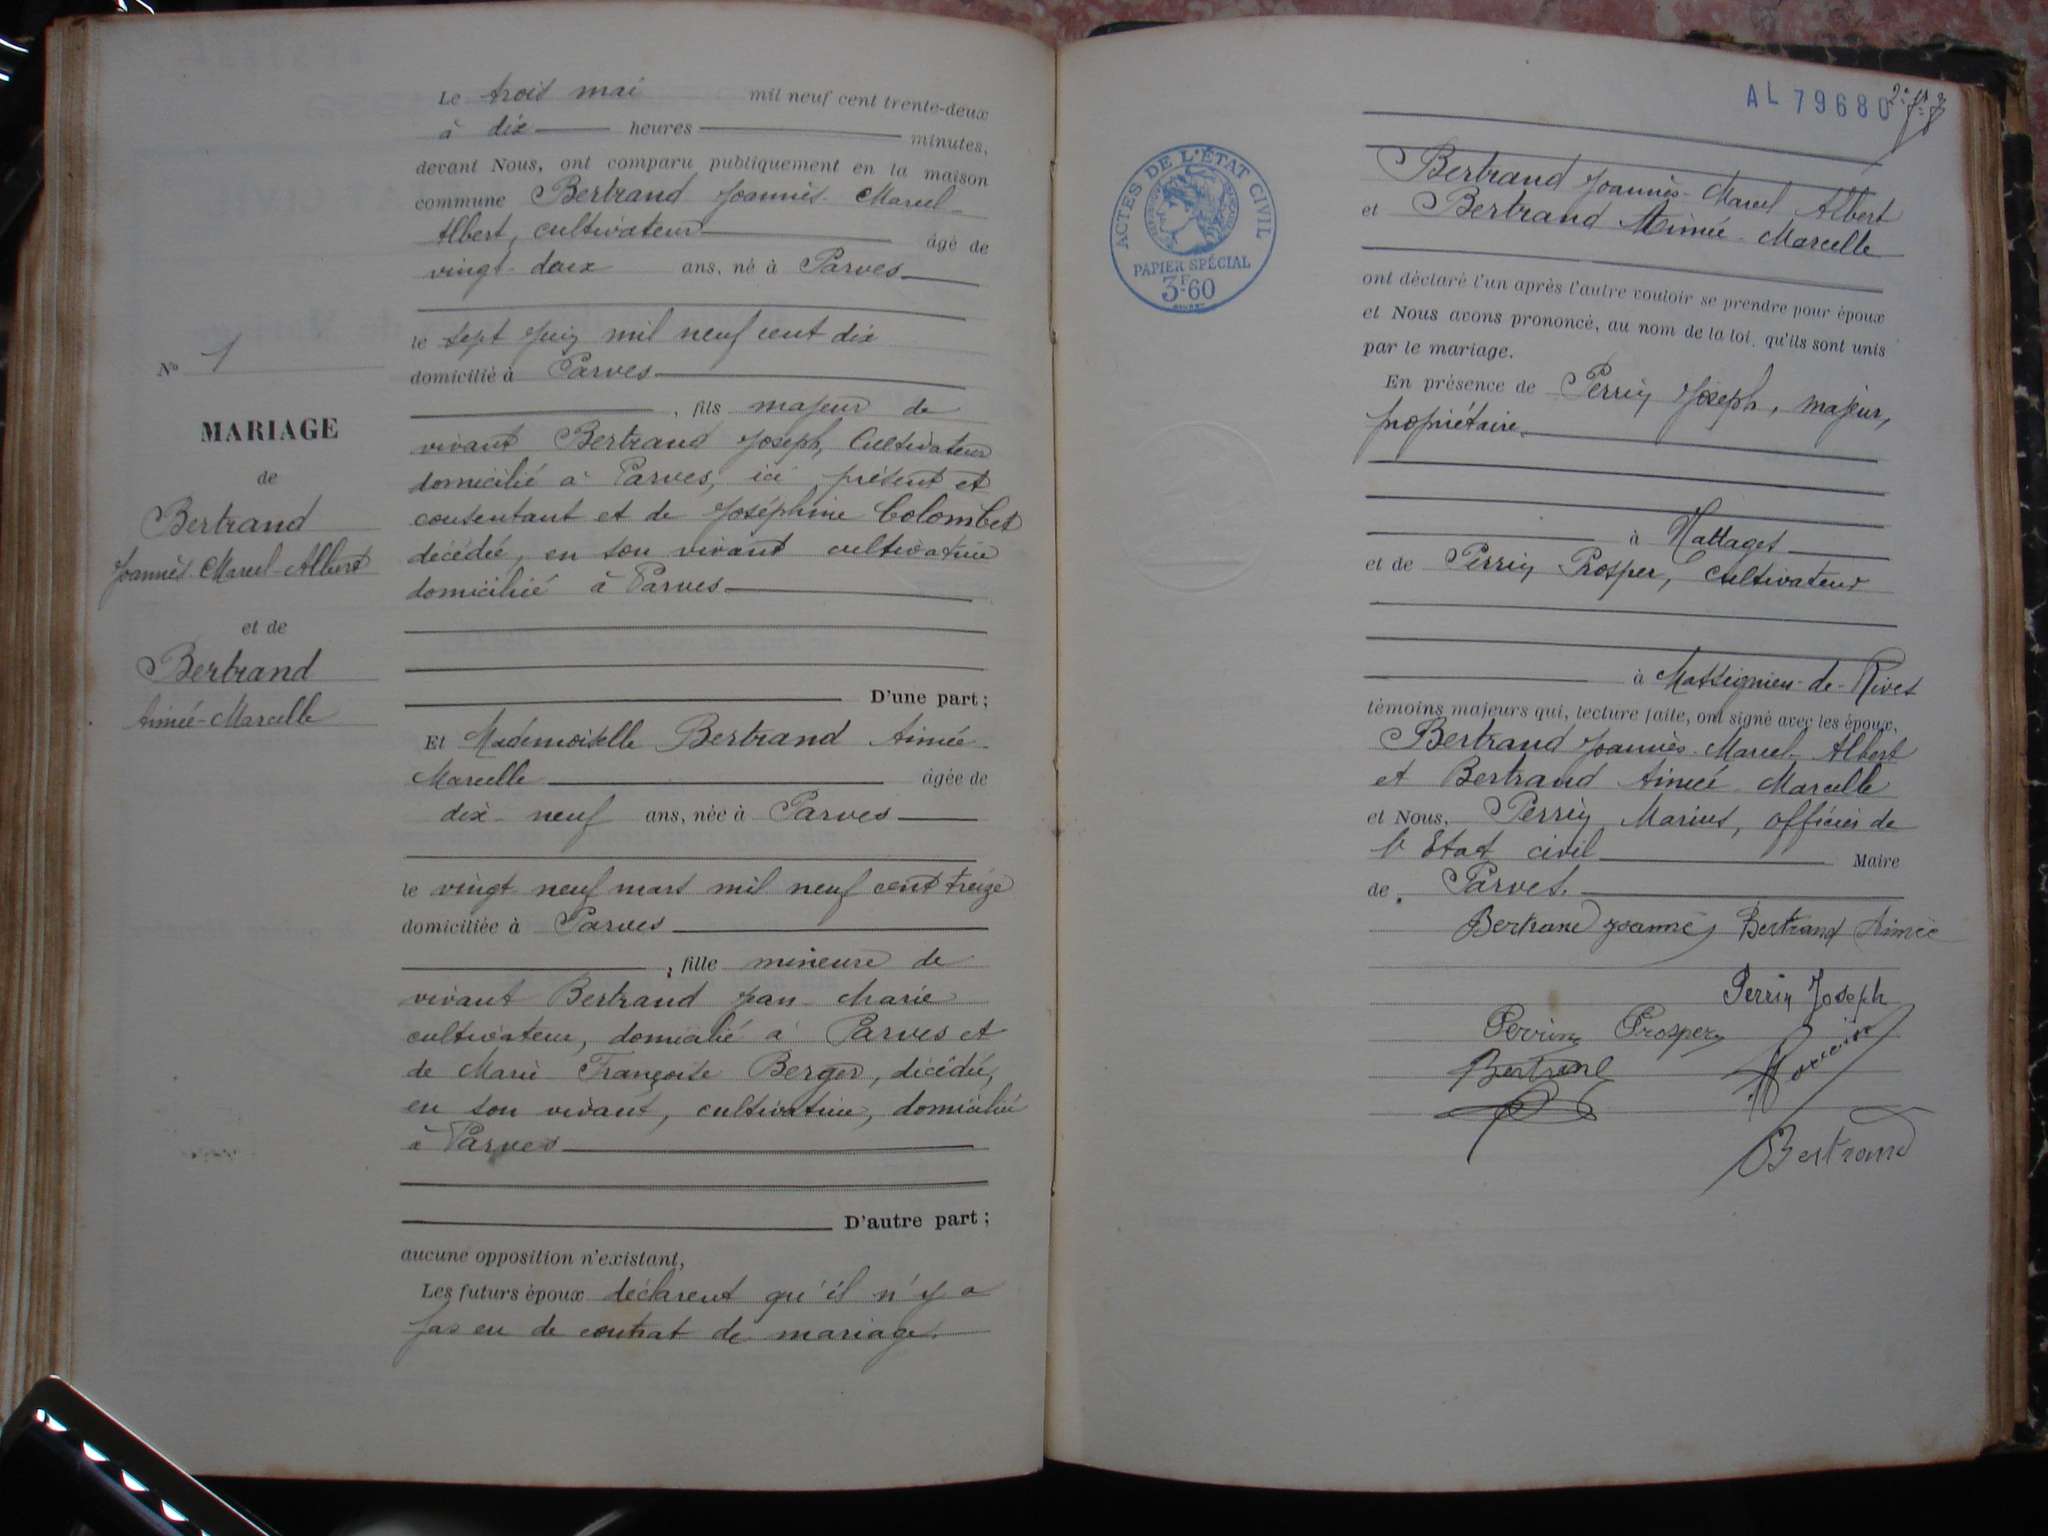 Le trois mai mil neuf cent trente-deux
à dix heures minutes,
devant Nous, ont comparu publiquement en la maison
commune Bertrand Joannès-Marcel-
Albert, cultivateur âgé de
vingt-deux ans, né à Parves
le sept juin mil neuf cent dix
domicilié à Parves
, fils majeur de
vivant Bertrand Joseph, Cultivateur
domicilié à Parves, ici présent et
consentant et de Joséphine Colombet
décédée, en son vivant cultivatrice
domiciliée à Parves
D'une part ;
Et Mademoiselle Bertrand Aimée-
Marcelle âgée de
dix-neuf ans, née à Parves
le vingt-neuf mars mil neuf cent treize
domiciliée à Parves
, fille mineure de
vivant Bertrand Jean-Marie
cultivateur, domicilié à Parves et
de Marie Françoise Berger, décédée,
en son vivant, cultivatrice, domiciliée
à Parves
D'autre part ;
aucune opposition n'existant,
Les futurs époux déclarent qu'il n'y a
pas eu de contrat de mariage.
No 1
MARIAGE
de
Bertrand
Joannès-Marcel-Albert
et de
Bertrand
Aimée-Marcelle
AL 79680
ACTES DE L'ÉTAT CIVIL
PAPIER SPÉCIAL
3F60
Bertrand Joannès-Marcel Albert
et Bertrand Aimée-Marcelle
ont déclaré l'un après l'autre vouloir se prendre pour époux
et Nous avons prononcé, au nom de la loi, qu'ils sont unis
par le mariage.
En présence de Perrin Joseph, majeur,
propriétaire
à Nattages
et de Perrin Prosper, cultivateur
à Massignieu-de-Rives
témoins majeurs qui, lecture faite, ont signé avec les époux,
Bertrand Joannès-Marcel-Albert
et Bertrand Aimée-Marcelle
et Nous, Perrin Marius, officier de
l'Etat civil Maire
de Parves.
Bertrand Joannès Bertrand Aimée
Perrin Joseph
Perrin Prosper
Bertrand
Bertrand